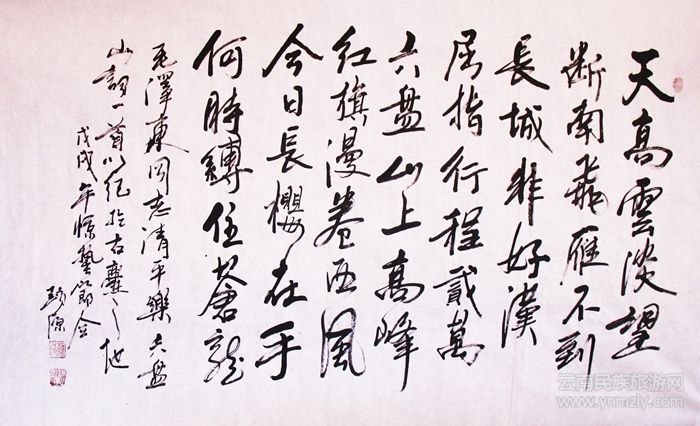 天高雲淡望
断南飛雁不到
長城非好漢
屈指行程貳萬
六盘山上高峰
红旗漫卷西風
今日長櫻在手
何時縛住蒼龍
毛澤東同志清平樂六盘
山詞一首以纪於古襄之地
戊戌年惊蟄節令
云南民族旅游网
www.ynmzly.com